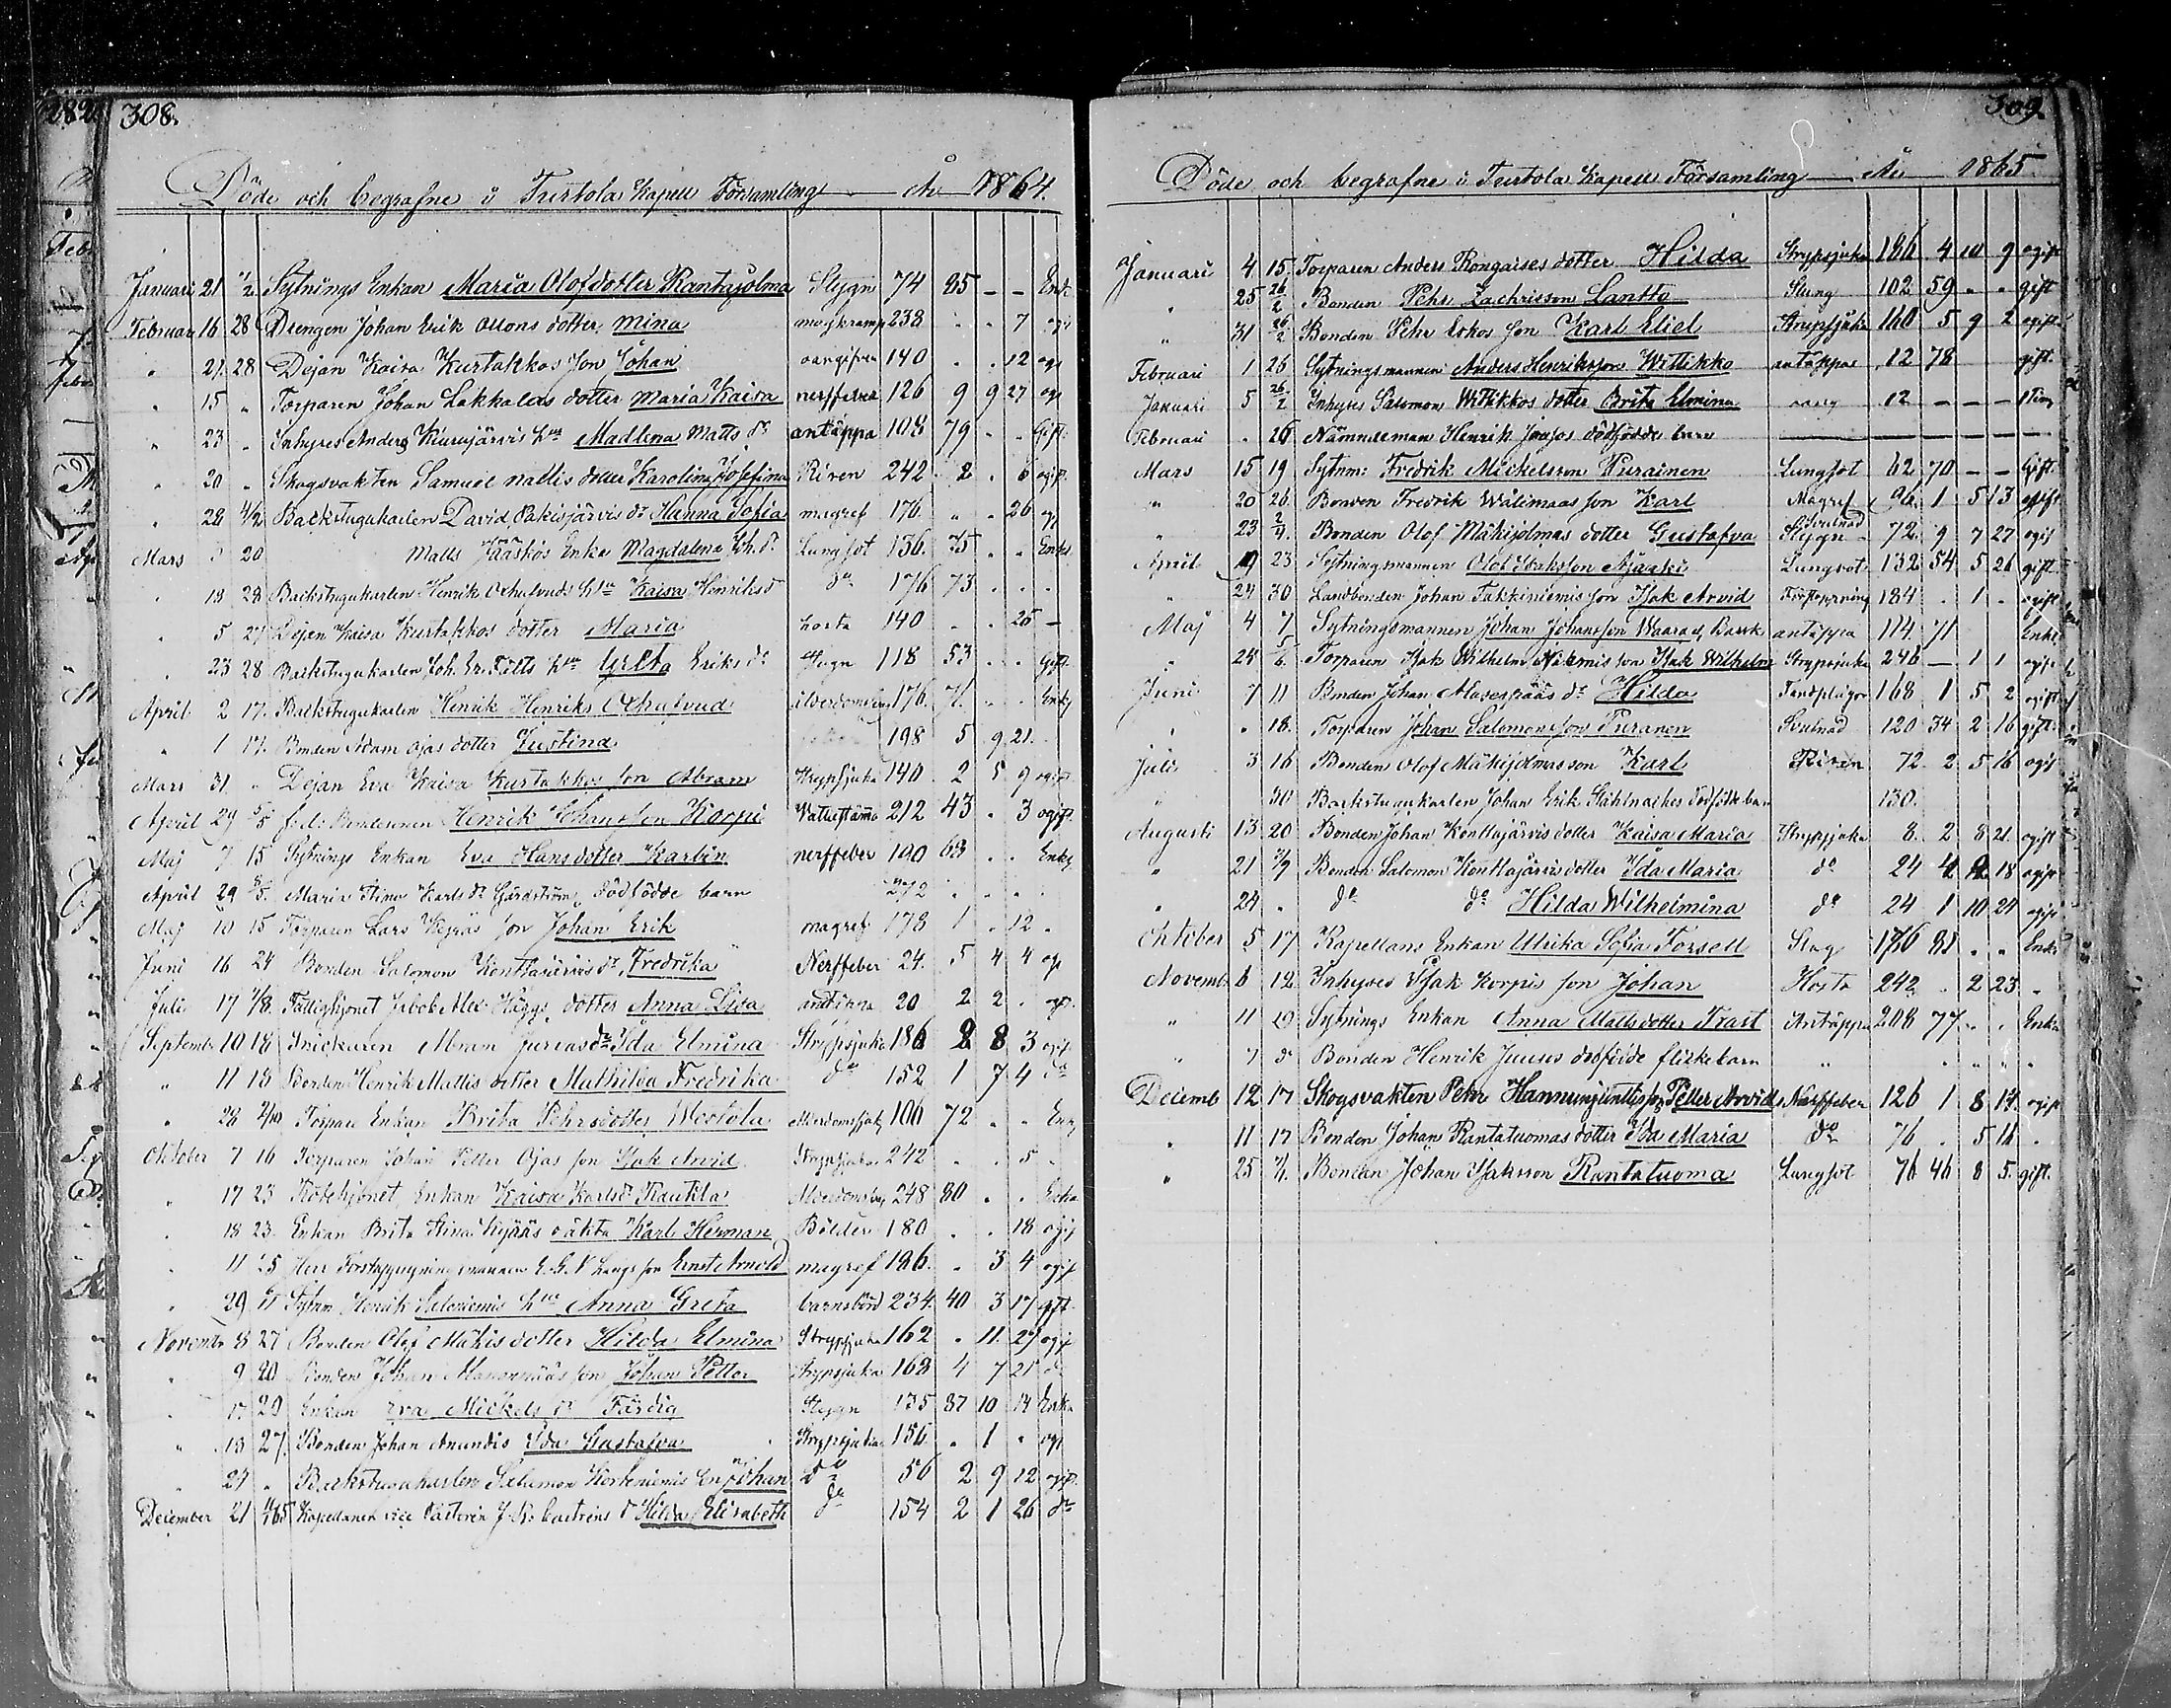 282
308.
Döde och begrafne i Turtola Kapell Församling År 1864.
Januari 21 1/2 Sytnings Enkan Maria Olofdotter Rantajolma Stygn 74 85 - - Enk
Februari 16 28 Drengen Johan Erik Ollons dotter Mina magkramp 238 . . 7 ogi
" 21 28 Dejan Kaisa Kurtakkos son Johan oangifven 140 . . 12 ogi
" 15 " Torparen Johan Lakkalas dotter Maria Kaisa nerffeber 126 9 9 27 ogi
" 23 " Inhyses Anders Kiurujärvis hu Madlena Matts dr antäppa 108 79 . . Gift
" 20 " Skogsvakten Samuel Mattis dotter Karolina Josefina Riren 242 2 . 6 ogif
" 28 4/2 Backstugukarlen David Pakisjärvis dr Hanna Sofia magref 176 " . 26 og
Mars 20 Matts Jääskös Enka Magdalena Joh. dr Lungsot 136 75 . . Enka
" 18 28 Backstugukarlen Henrik Oxhufvuds hu Kaisa Henriksd do 176 73 . . .
" 5 27 Dejan Kaisa Kurtakkos dotter Maria hosta 140 . . 25 -
" 23 28 Backstugukarlen Joh. Er. Tolls hu Greta Eriks dr Stygn 118 53 . . Gift
April 2 17. Backstugukarlen Henrik Henriks Oxhufvud 176 71 . . Enkg
" 1 17. Bonden Adam Ojas dotter Justina 198 5 9 21.
Mars 31. " Dejan Eva Kaisa Kurtakkos son Abram Strypsjuka 140 2 5 9 ogif
April 29 5/5 f.d. Bondesonen Henrik Johansson Korpi 212 43 . 3 ogift
Maj 7 15 Sytnings Enkan Eva Hansdotter Karbin nerffeber 190 63 . . Enka
April 29 8/5. Maria Stina Karls dr Gjärdström dödfödde barn 272 . . .
Maj 10 15 Torparen Lars Kejräs son Johan Erik magref 178 1 . 12 .
Juni 16 24 Bonden Salomon Konttajärvis dr Fredrika Nerffeber 24. 5 4 4 ogi
Juli 17 7/8. Fattighjonet Jakob Alex Häggs dotter Anna Lisa 20 2 2 . ogi.
Septemb 10 18 Snickaren Abram Jurvas dr Ida Elmina Strypsjuka 186 2 8 3 ogif
" 11 18 Bonden Henrik Mattis dotter Mathilda Fredrika do 152 1 7 4 do
" 28 2/10 Torpare Enkan Brita Pehrsdotter Westola 106 72 . . Enk
Oktober 7 16 Torparen Johan Petter Ojas son Isak Arvid Strypsjuka 242 . . 5 .
" 17 23 Rotehjonet Enkan Kaisa Karlsd Rautila 248 80 . . Enka
" 18 23. Enkan Brita Stina Kejräs oäkta Karl Herman Bölder 180 . . 18 ogif
" 11 25 Herr E. G. N. Langs son Ernst Arnold magref 196. . 3 4 ogif
" 29 Sytnm Henrik hu Anna Greta barnsbörd 234. 40 3 17 gft.
Novembr 8 27 Bonden Olof Mäkis dotter Hilda Elmina Strypsjuka 162 . 11. 29 ogif
" 9 20 Bonden Johan son Johan Petter Strypsjuka 168 4 7 21 do
" 17 20 Enkan Eva Mickels dr Färdig Stygn 135 87 10 14 Enka
" 13 27. Bonden Johan Anundis Ida Gustafva Strypsjuka 156 . 1 . ogi
" 24 " Backstugukarlen Salomon Kortenimis son Johan do 56 2 9 12 ogif.
December 21 1/1 65 Kapellanen vice Pastorn J. K. Castréns dr Hilda Elisabeth do 154 2 1 26 do
309.
Döde och begrafne i Turtola Kapell Församling År 1865.
Januari 4 15. Torparen Anders Rongaises dotter Hilda Strypsjuka 186 4 10 9 ogift
" 25 26/2 Bonden Pehr Zachrisson Lantto Stung 102 59 . . gift
" 31 26/2 Bonden Pehr Eskos son Karl Eliel Strypsjuka 160 5 9 2 ogift
Februari 1 26 Sytningsmannen Anders Henriksson Wittikko antäppa 12 78 gift.
Januari 5 26/2 Inhyses Salomon Wittikkos dotter Brita Elmina 12 - - - 1 tim
Februari . 26 Nämndeman Henrik Juujos dödfödde barn
Mars 15 19 Sytnm: Fredrik Mickelsson Kurainen Lungsot 62 70 - - Gift.
" 20 26. Bonden Fredrik Wälimaas son Karl Magref 96. 1 5 13 ogift
" 23 2/4. Bonden Olof Mäkijolmas dotter Gustafva Stygn Svulnad 72. 9 7 27 ogif
April 9 23 Sytningsmannen Olof Isaksson Äjaaki Lungsot 132 54 5 26 gift
" 24 30 Landbonden Johan Takkiniemis son Isak Arvid Förstoppning 184 . 1 . ogift
Maj 4 7 Sytningsmannen Johan Johansson Waara antäppa 114 71 Enkl
" 25 5/6. Torparen Isak Wilhelm Niemis son Isak Wilhelm Strypsjuka 246 - 1 1 ogift
Juni 7 11 Bonden Johan dr Hilda Tandplågor 168 1 5 2 ogift
" . 18. Torparen Johan Salomonsson Puranen Svulnad 120 34 2 16 gift.
Juli 3 16 Bonden Olof Mäkijolmas son Karl Riren 72. 2 5 16 ogif
" 30 Backstugukarlen Johan Erik Ståhlnackes dödfödde barn 130.
Augusti 13 20 Bonden Johan Konttajärvis dotter Kaisa Maria Strypsjuka 8. 2 8 21. ogift
" 21 3/9 Bonden Salomon Konttajärvis dotter Ida Maria do 24 4 2 18 ogift
" 24 " do do Hilda Wilhelmina do 24 1 10 24 ogif
Oktober 5 17 Kapellans Enkan Ulrika Sofia Forsell Slag 176 81 . . Enka
Novemb. 6 12 Inhyses Isak Korpis son Johan Hosta 242 . 2 23 .
" 11 19 Sytnings Enkan Anna Mattsdotter Trast Antäppa 208 77 . . Enka
" 7 do Bonden Henrik Juuus dödfödde flickebarn " . . . .
Decemb 12 17 Skogsvakten Petr Hannunjunttis son Petter Arvid Nerffeber 126 1 8 14 ogift
" 11 17 Bonden Johan Rantatuomas dotter Ida Maria do 76 . 5 14 .
" 25 7/1. Bonden Johan Isaksson Rantatuoma Lungsot 76 46 8 5. gift.